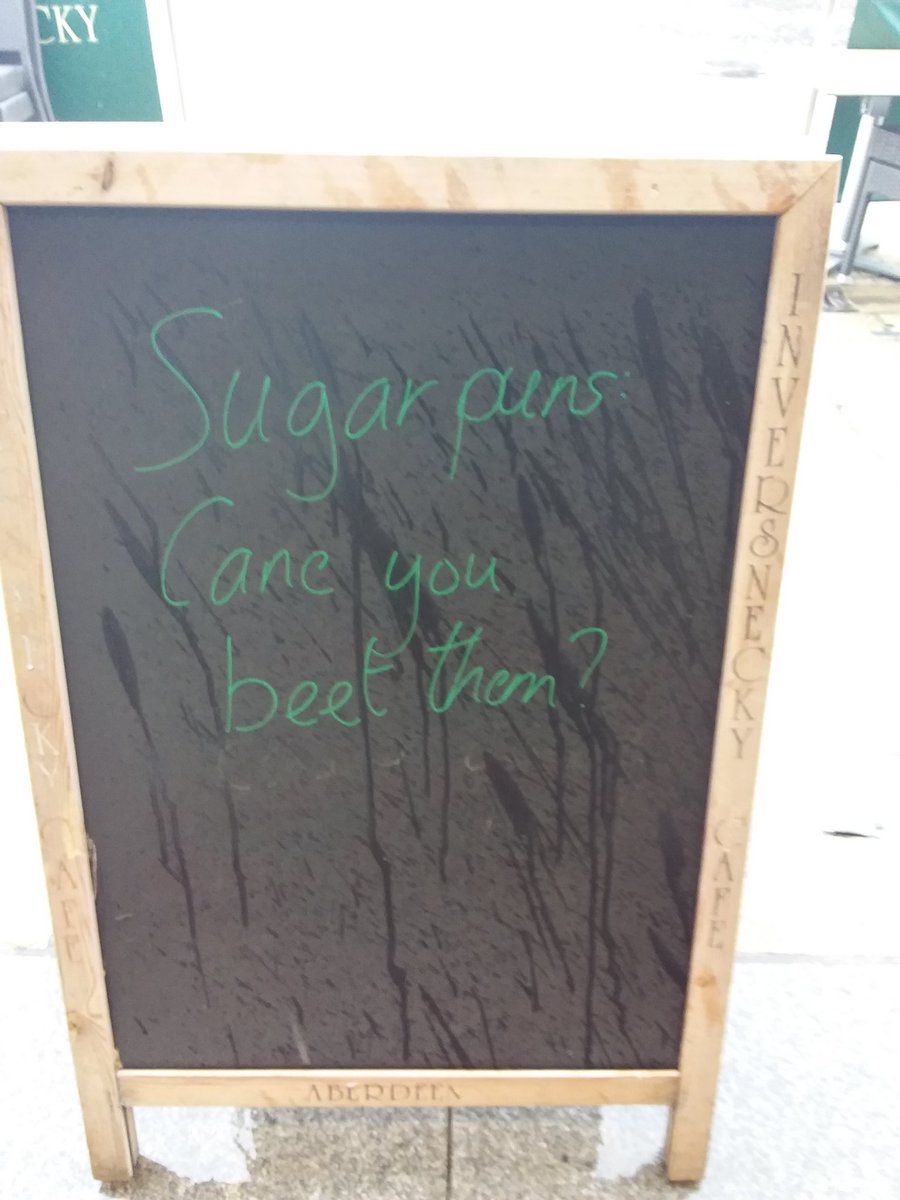 CKY
Sugar puns:
Cane you
beet them?
INVERSNECKY CAFE
CAFE
ABERDEEN